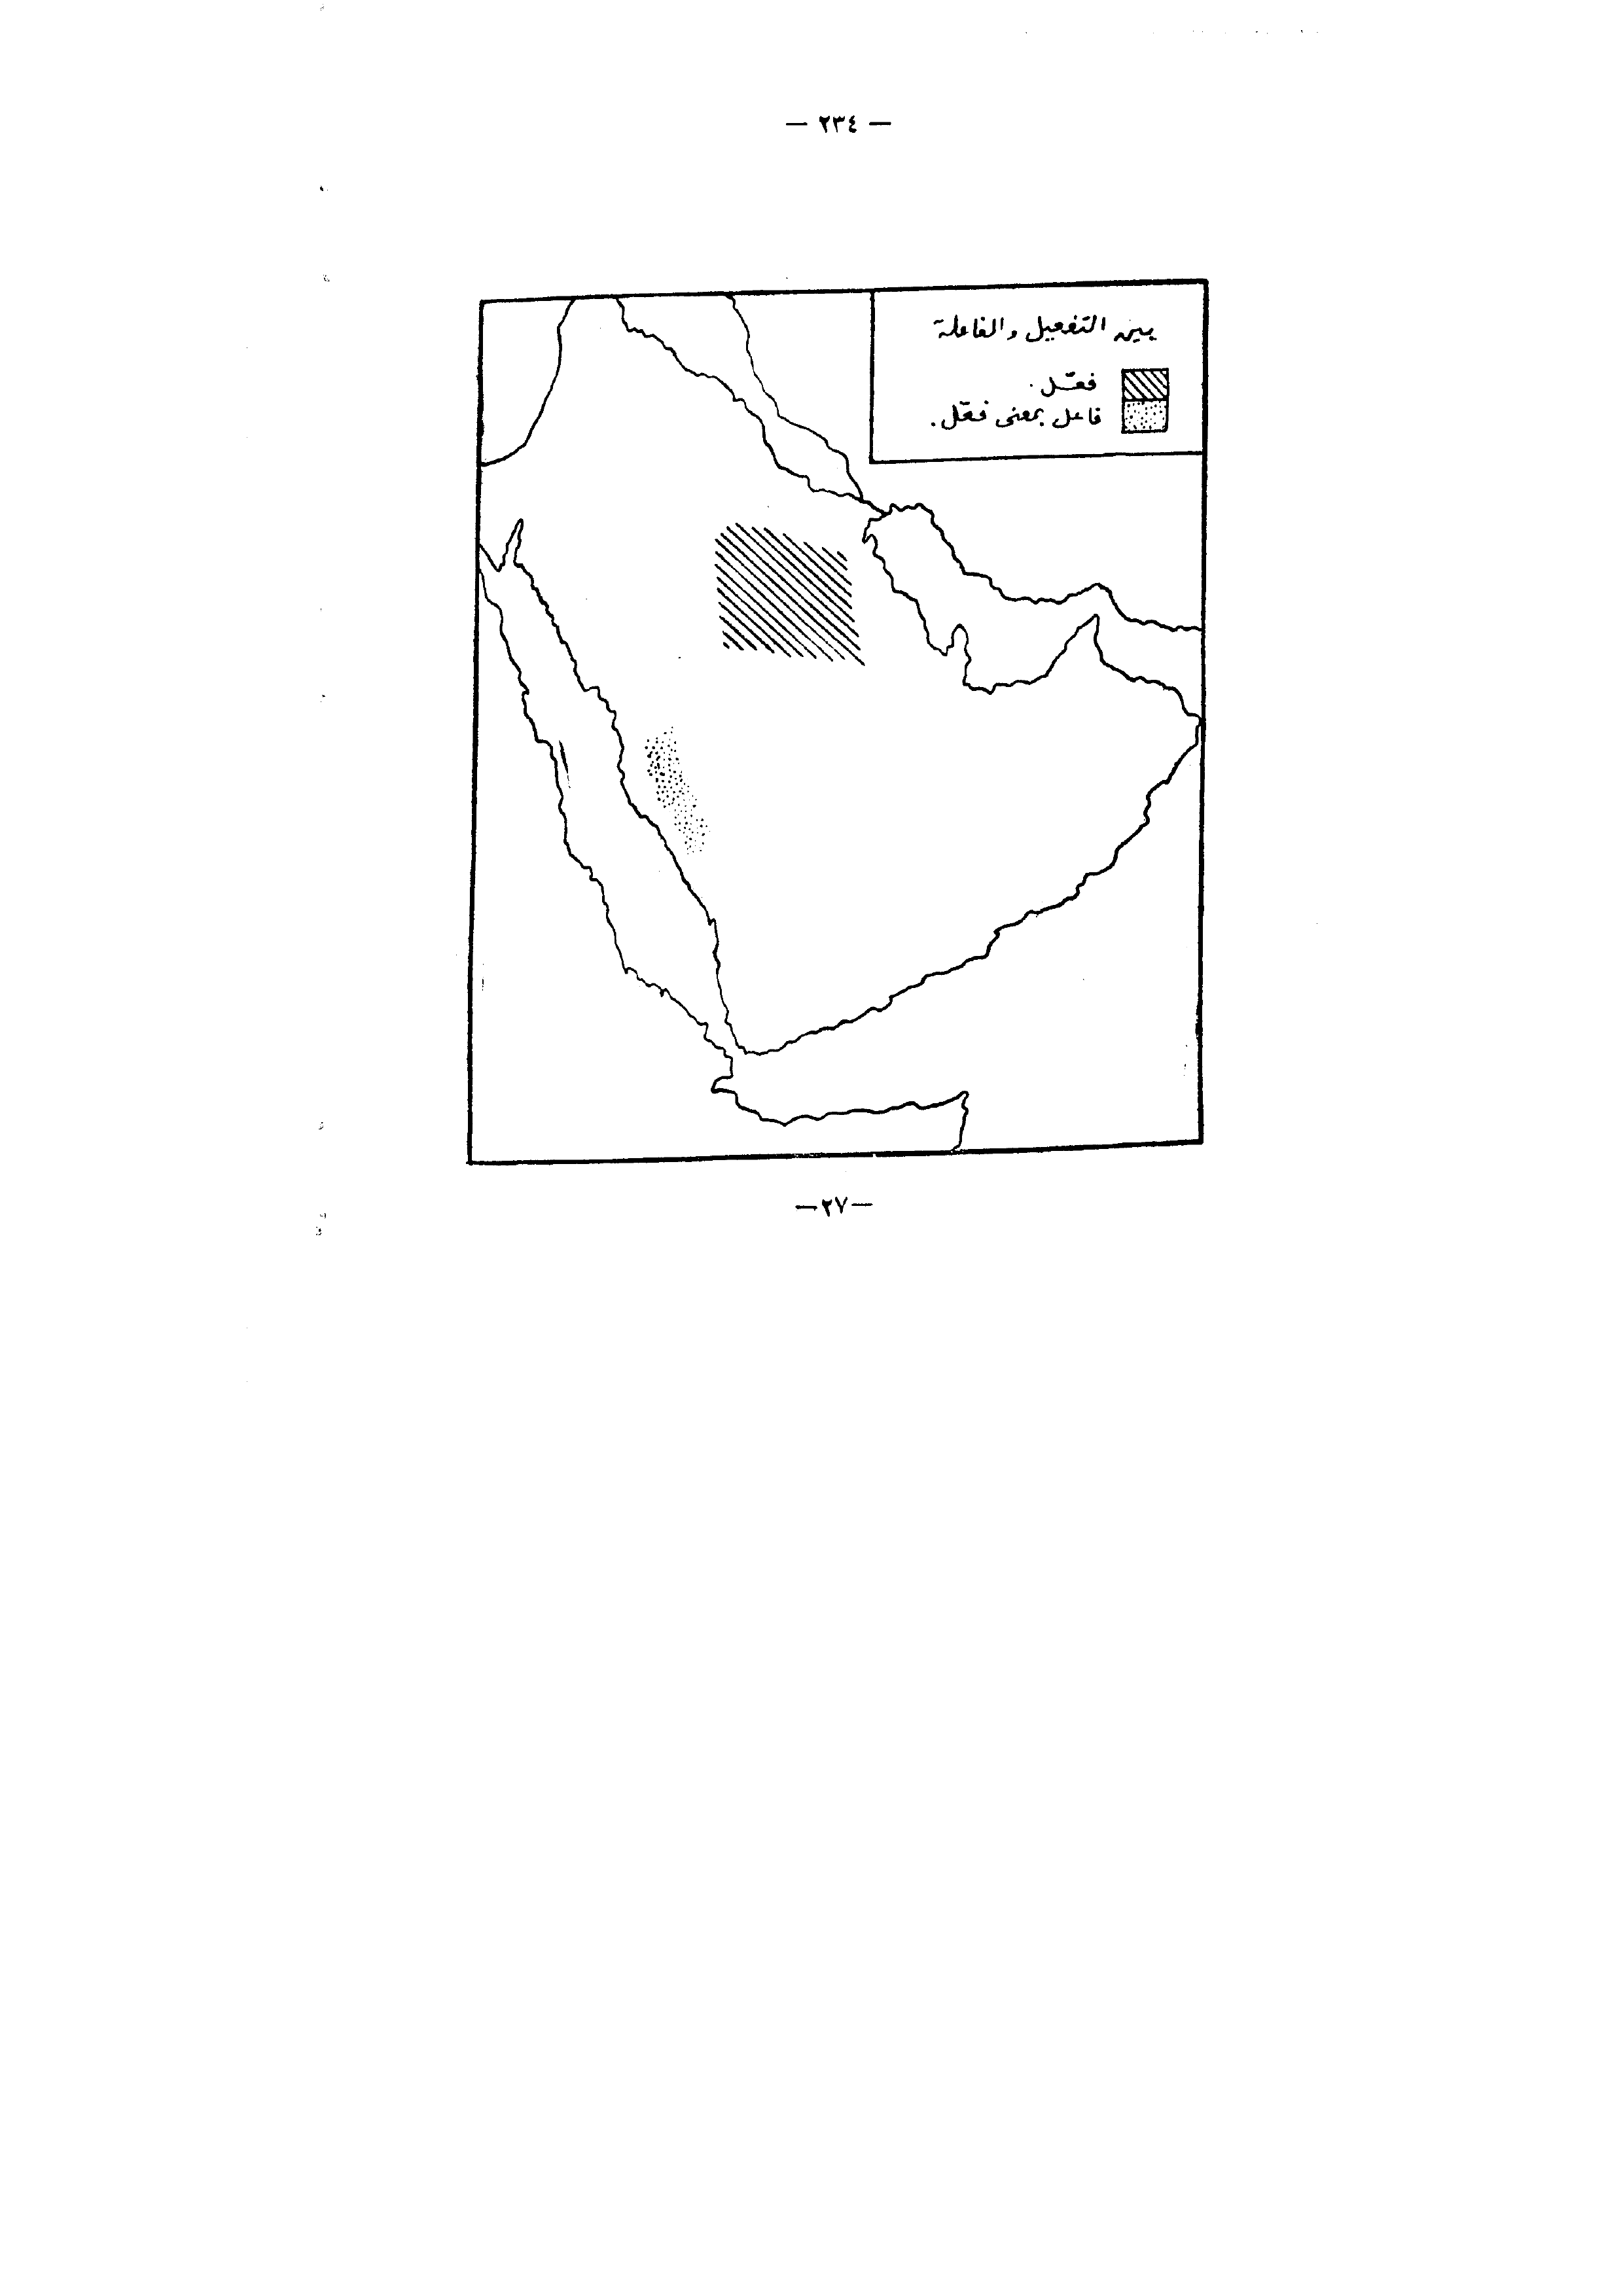 — ٢٣٤ —
بين التفعيل والفاعلة
فعّل .
فاعل بمعنى فعّل .
—٢٧—